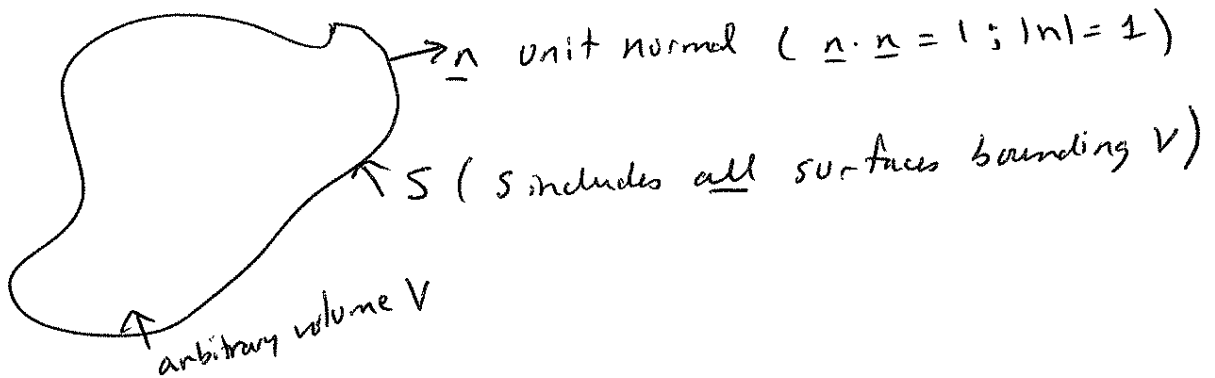 n unit normal ( n · n = 1 ; |n| = 1 )
S ( S includes all surfaces bounding V )
arbitrary volume V